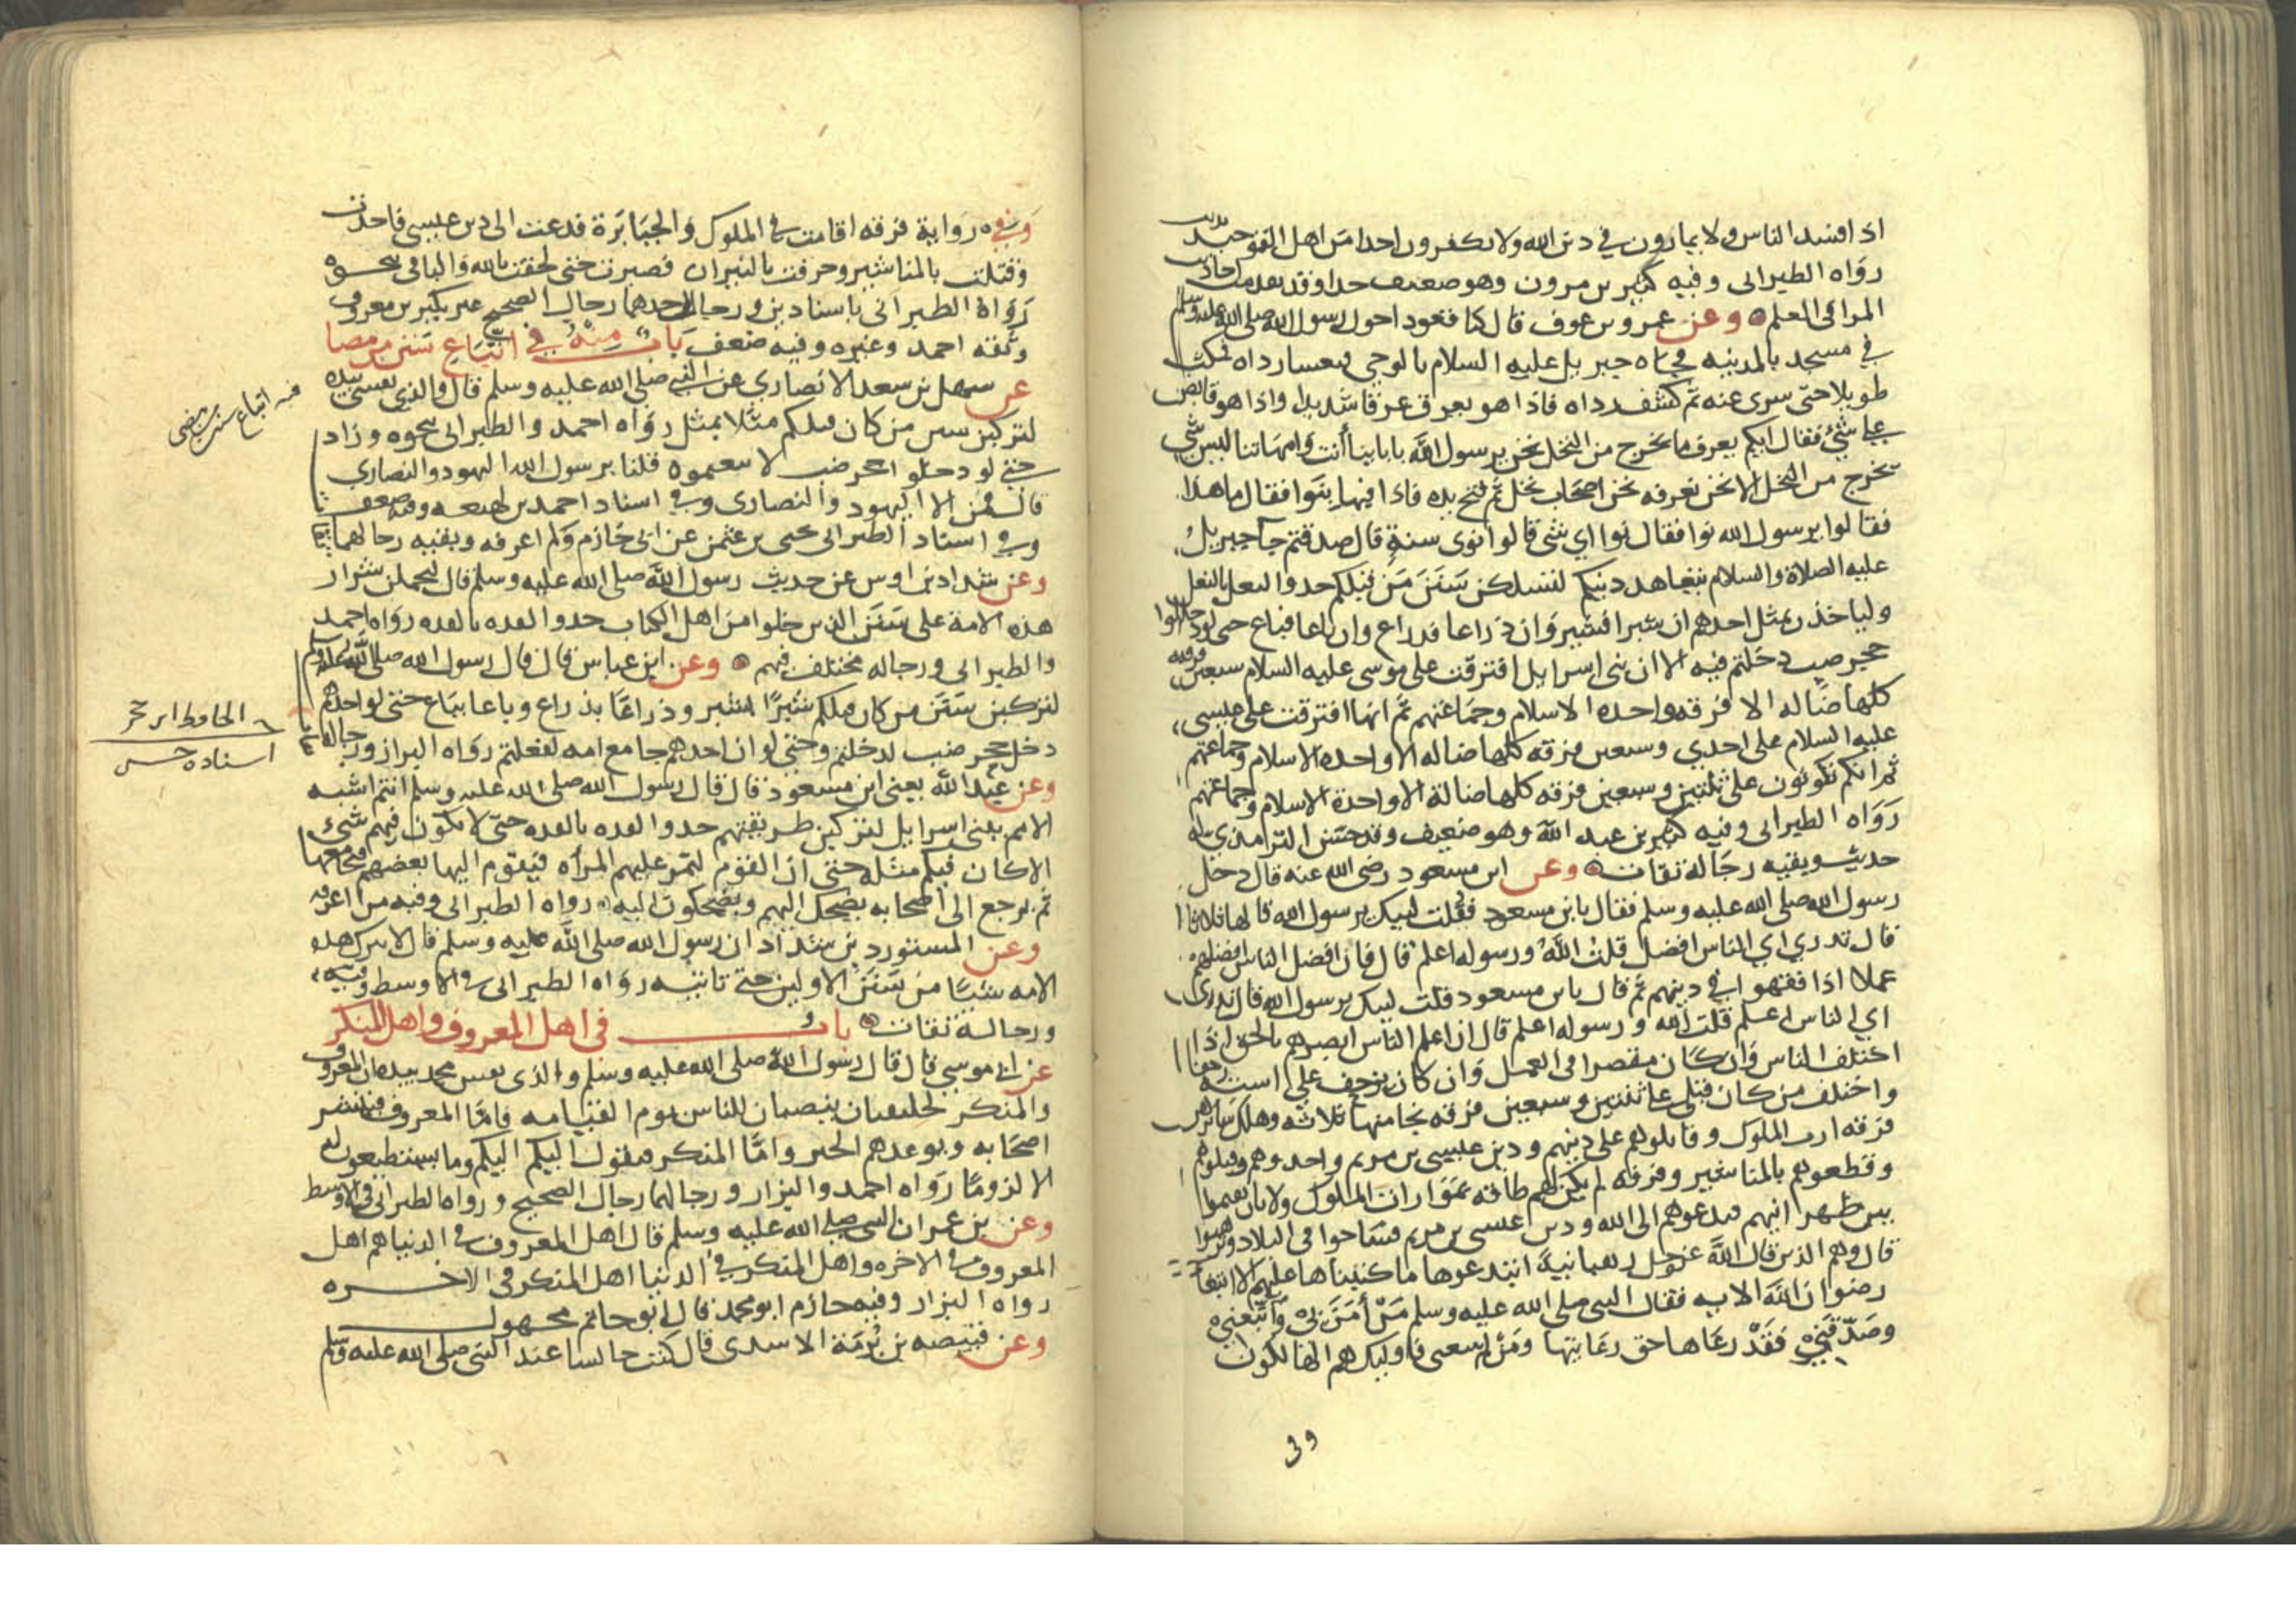 اذا فسد الناس ولا يمارون في دين الله ولا يكفرون احدا من اهل التوحيد
رواه الطبراني وفيه كثير بن مرون وهو ضعيف جدا وقد تقدمت احاديث
المرا في العلم وعن عمرو بن عوف قال كنا قعودا حول رسول الله صلى الله عليه وسلم
في مسجد بالمدينه فجاه جبريل عليه السلام بالوحي فتغشا رداه فمكث
طويلا حتى سرى عنه ثم كشف رداه فاذا هو يعرق عرقا شديدا واذا هو قابض
على شئ فقال ايكم يعرف ما يخرج من النخل نحن يرسول الله بابابينا أنت وامهاتنا ليس شي
يخرج من النخل الا نحن نعرفه نحن اصحاب نخل ثم فتح يده فاذا فيها نوا فقال ما هذا
فقالوا يرسول الله نوا فقال نوا اي شي قالوا نوى سنة قال صدقتم جآ جبريل
عليه الصلاة والسلام يتعاهد دينكم لتسلكن سنن من قبلكم حدو النعل بالنعل
ولياخذن بمثل اخدهم ان شبرا فشبر وان ذراعا فذراع وان باعا فباع حتى لو دخلوا
حجر ضب دخلتم فيه الا ان بنى اسرايل افترقت على موسى عليه السلام سبعين فرقه
كلها ضاله الا فرقه واحده الاسلام وجماعتهم ثم انها افترقت على عيسى
عليه السلام على احدي وسبعين فرقه كلها ضاله الا واحده الاسلام وجماعتهم
ثم انكم تكونون على ثنتين وسبعين فرقه كلها ضالة الا واحدة الاسلام وجماعتهم
رواه الطبراني وفيه كثير بن عبد الله وهو ضعيف وقد حسن الترمذي له
حديث وبقيه رجاله ثقات وعن ابن مسعود رضي الله عنه قال دخل
رسول الله صلى الله عليه وسلم فقال يابن مسعود فقلت لبيك يرسول الله قالها ثلاثا
قال تدري اي الناس افضل قلت الله ورسوله اعلم قال فان افضل الناس افضلهم
عملا اذا فقهوا في دينهم ثم قال يابن مسعود قلت لبيك يرسول الله قال تدري
اي الناس اعلم قلت الله ورسوله اعلم قال ان اعلم الناس ابصرهم بالحق اذا
اختلف الناس وان كان مقصرا في العمل وان كان يزحف على استه زحفا
واختلف من كان قبلي على ثنتين وسبعين فرقه نجا منها ثلاثه وهلك سايرهن
فرقه ازت الملوك وقاتلوهم على دينهم ودين عيسى بن مريم واخدوهم وقتلوهم
وقطعوهم بالمناشير وفرقه لم يكن لهم طاقه بموازات الملوك ولا بان يقيموا
بين ظهرانيهم فيدعوهم الى الله ودين عيسى بن مريم فساحوا في البلاد وترهبوا
قال وهم الذين قال الله عز وجل رهبانية ابتدعوها ما كتبناها عليهم الا ابتغا
رضوان الله الايه فقال النبي صلى الله عليه وسلم من أمن بي واتبعني
وصدقني فقد رعاها حق رعايتها ومن لم يتبعني فاوليك هم الهالكون
وفي
وفي رواية فرقه اقامت في الملوك والجبابرة فدعت الى دين عيسى فاخذت
وقتلت بالمناشير وحرقت بالنيران فصبرت حتى لحقت بالله والباقي بنحوه
رواه الطبراني باسنادين ورجال احدهما رجال الصحيح غير بكير بن معروف
وثقه احمد وغيره وفيه ضعف باب منه في اتباع سنن من مضا
عن سهل بن سعد الانصاري عن النبي صلى الله عليه وسلم قال والذي نفسي بيده
لتركبن سنن من كان قبلكم مثلا بمثل رواه احمد والطبراني بنحوه وزاد
حتى لو دخلوا جحر ضب لاتبعتموه قلنا يرسول الله اليهود والنصاري
قال فمن الا اليهود والنصارى وفي اسناد احمد بن لهيعه وفيه ضعف
وفي اسناد الطبراني يحيى بن عثمن عن ابي حازم ولم اعرفه وبقيه رجالهما ثقات
وعن شداد بن اوس عن حديث رسول الله صلى الله عليه وسلم قال ليحملن شرار
هذه الامة على سنن الذين خلوا من اهل الكتاب حدو القده بالقده رواه احمد
والطبراني ورجاله مختلف فيهم وعن ابن عباس قال قال رسول الله صلى الله عليه وسلم
لتركبن سنن من كان قبلكم شبرا بشبر وذراعا بذراع وباعا بباع حتى لو احدهم
دخل جحر ضب لدخلتم وحتى لو ان احدهم جامع امه لفعلتم رواه البزار ورجاله ثقات
وعن عبد الله يعني ابن مسعود قال قال رسول الله صلى الله عليه وسلم انتم اشبه
الامم ببني اسرايل لتركبن طريقتهم حدو القده بالقده حتى لا يكون فيهم شئ
الا كان فيكم مثله حتى ان القوم لتمر عليهم المرأه فيقوم اليها بعضهم فيجامعها
ثم يرجع الى اصحابه يضحك اليهم ويضحكون اليه رواه الطبراني وفيه من لم اعرفه
وعن المستورد بن شداد ان رسول الله صلى الله عليه وسلم قال لا تترك هذه
الامه شيئا من سنن الاولين حتى تاتيه رواه الطبراني في الاوسط وفيه
ورجاله ثقات باب في اهل المعروف واهل المنكر
عن ابي موسي قال قال رسول الله صلى الله عليه وسلم والذي نفس محمد بيده ان المعروف
والمنكر لخليقتان ينصبان للناس يوم القيامه فاما المعروف فيبشر
اصحابه ويوعدهم الخير واما المنكر فيقول اليكم اليكم وما يستطيعون له
الا لزوما رواه احمد والبزار ورجالهما رجال الصحيح ورواه الطبراني في الاوسط
وعن بن عمر ان النبي صلى الله عليه وسلم قال اهل المعروف في الدنيا هم اهل
المعروف في الاخره واهل المنكر في الدنيا اهل المنكر في الاخره
رواه البزار وفيه حازم ابو محمد قال ابو حاتم مجهول
وعن قبيصه بن برمة الاسدي قال كنت جالسا عند النبي صلى الله عليه وسلم
فيه اتباع سنن من مضى
الحافظ ابن حجر
اسناده حسن